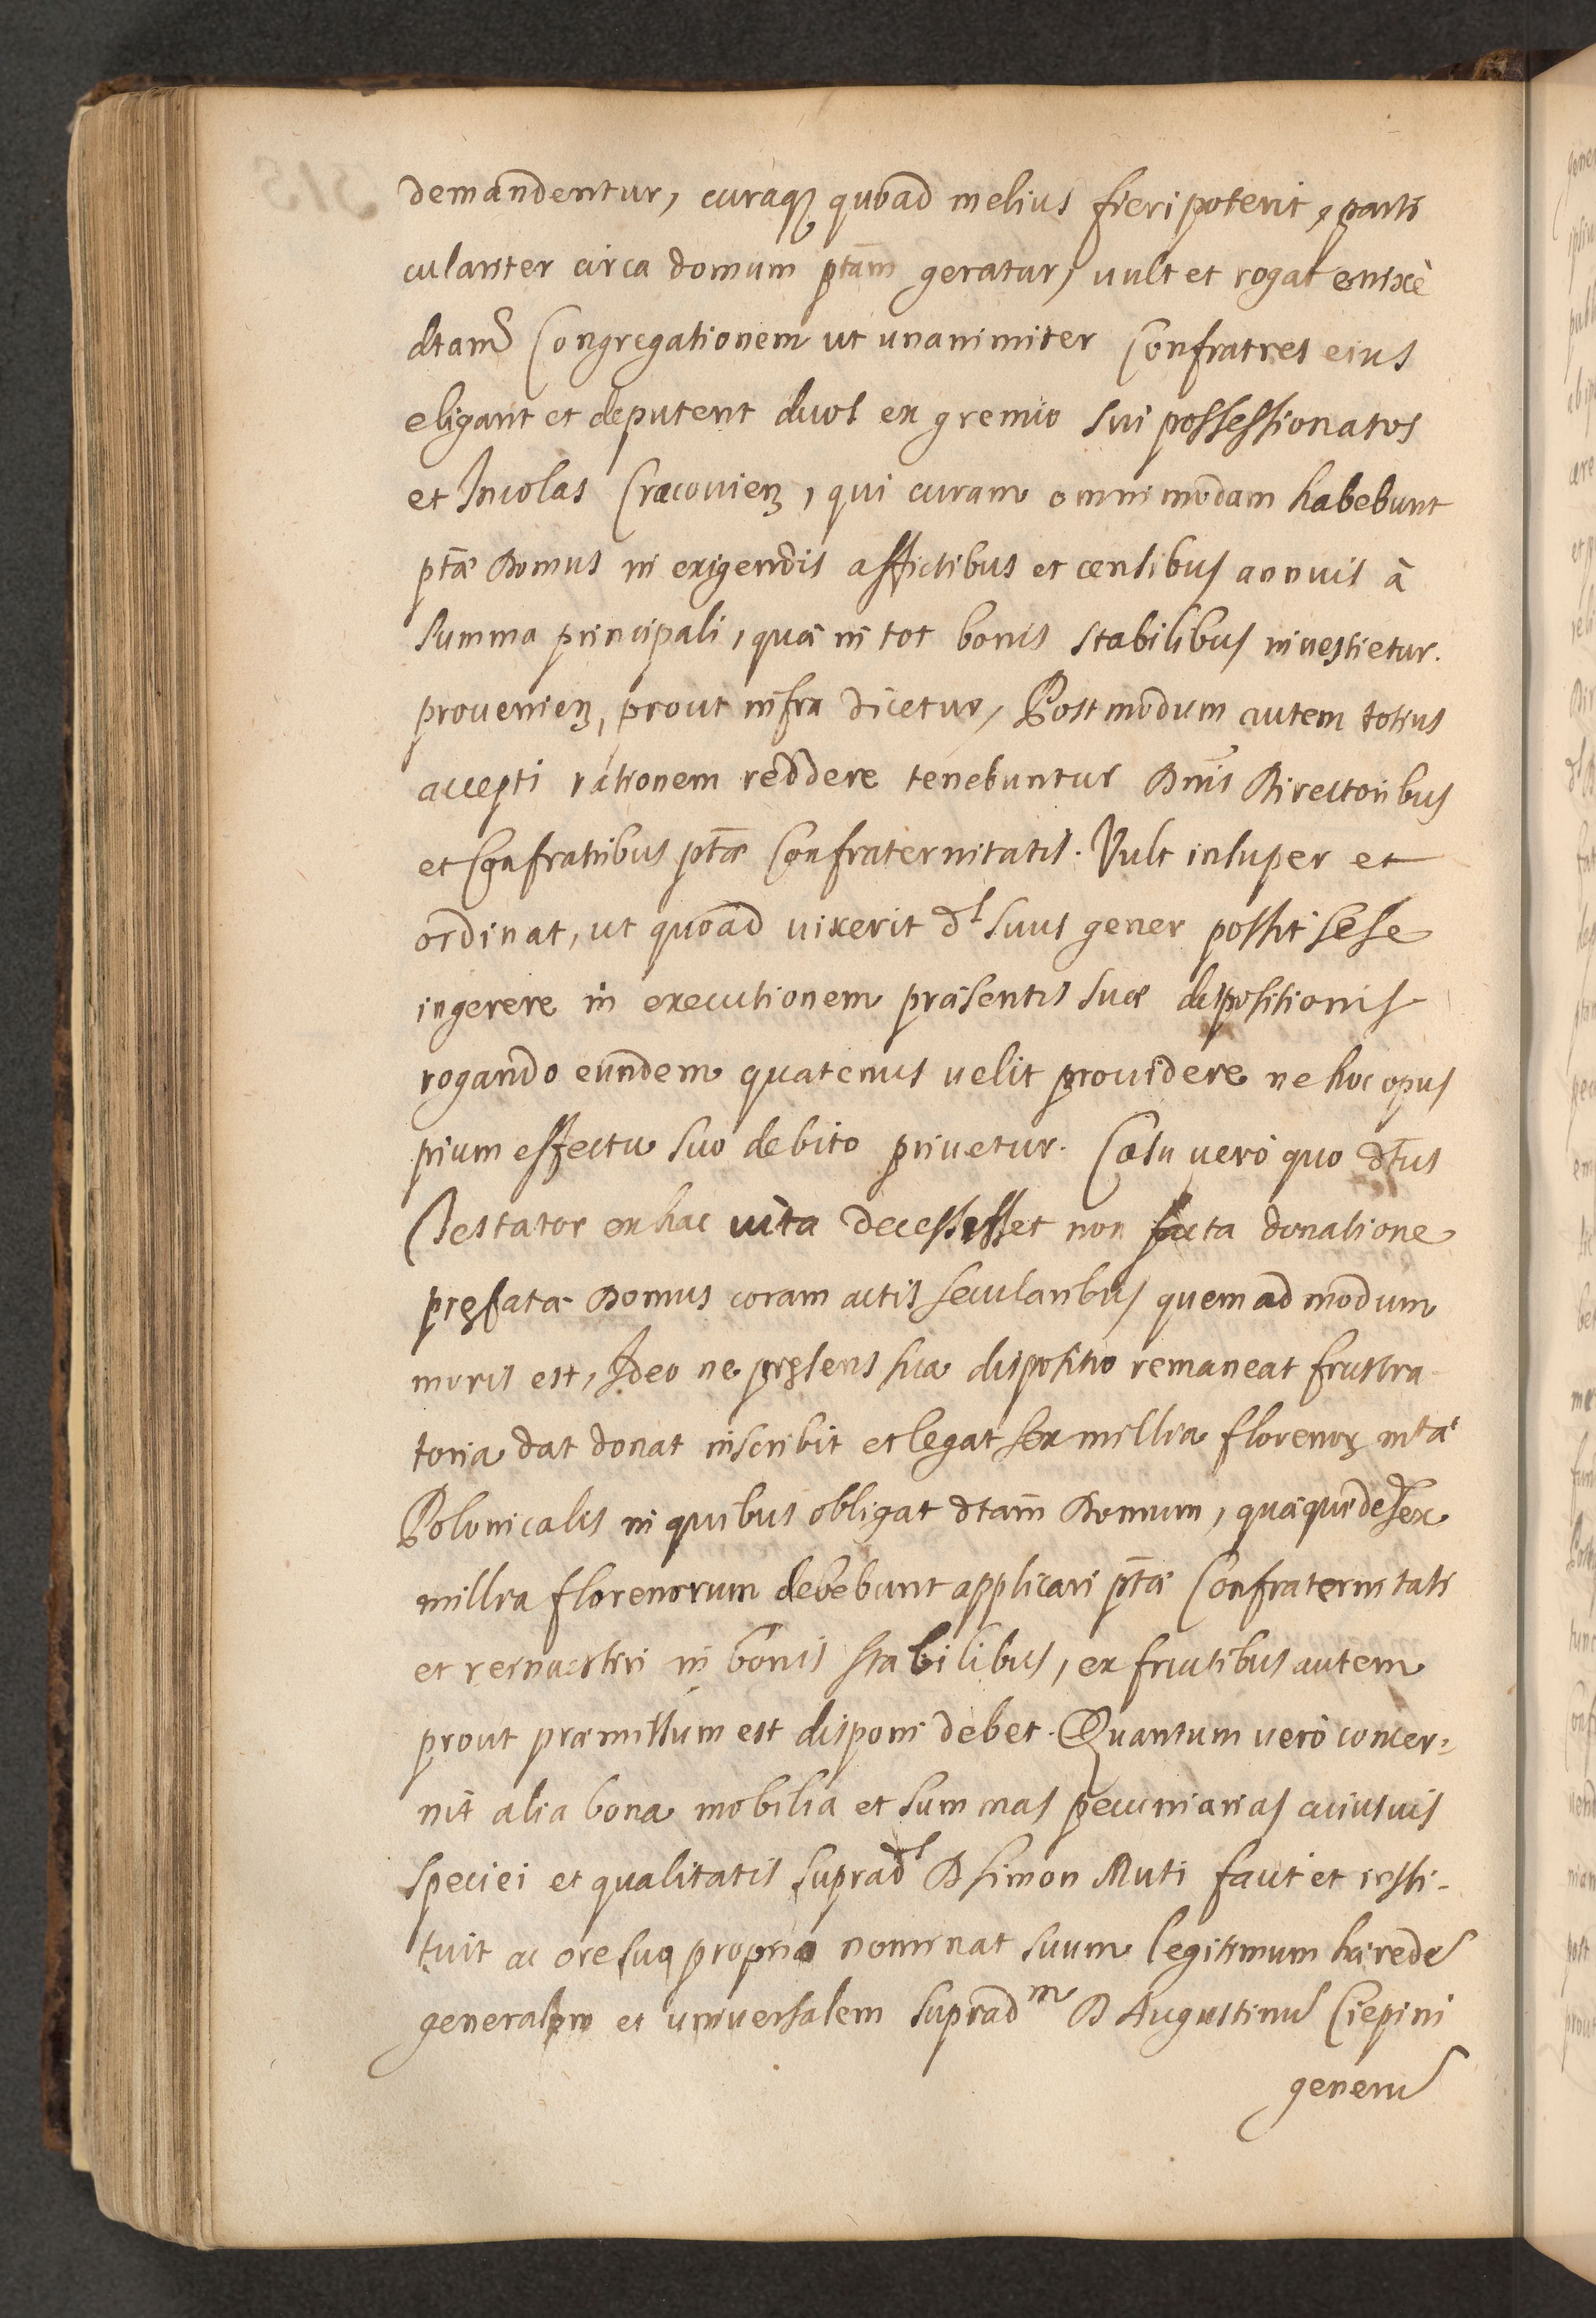 demandentur, curaqꝫ quoad melius fieri poterit, parti
culariter circa domum ptam̄ geratur, uult et rogat enixè
dtam̄ Congregationem ut unanimiter Confratres eius
eligant et deputent duos ex gremio sui possessionatos
et Incolas Cracouienꝫ, qui curam omnimodam habebunt
ptǣ Domus in exigendis affictibus et censibus annuis à
summa principali, quæ in tot bonis stabilibus inuestietur.
prouenienꝫ, prout infra dicetur, Postmodum autem totius
accepti rationem reddere tenebuntur Dnis̄ Directoribus
et Confratribus ptǣ Confraternitatis. Vult insuper et
ordinat, ut quoad uixerit ds suus gener possit sese
ingerere in executionem præsentis suæ dispositionis
rogando eundem quatenus uelit prouidere ne hoc opus
pium effectu suo debito priuetur. Casu uerò quo dt̄us
Testator ex hac uita decessisset non facta donatione
pręfatæ Domus coram actis secularibus quemadmodum
moris est, Ideo ne pręsens sua dispositio remaneat frustra-
toria dat donat inscribit et legat sex millia florenorꝫ mtæ
Polonicalis in quibus obligat dtam̄ Domum, quæquidē sex
millia florenorum debebunt applicari ptǣ Confraternitati
et reinuestiri in bonis stabilibus, ex fructibus autem
prout præmissum est disponi debet. Quantum uerò concer=
nit alia bona mobilia et summas pecuniarias cuiusuis
speciei et qualitatis suprads D Simon Muti facit et insti-
tuit ac ore suo proprio nominat suum legitimum hæredē
generalem et uniuersalem supradm D Augustinū Ciepini
generū